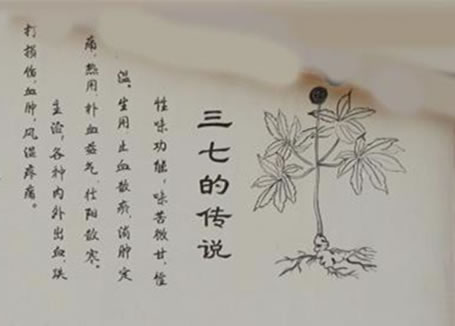 三七的传说
性味功能，味苦微甘，性
温。生用，止血散瘀，消肿定
痛，热用补血益气，壮阳散寒。
主治，各种内外出血，跌
打损伤，血肿，风湿疼痛。